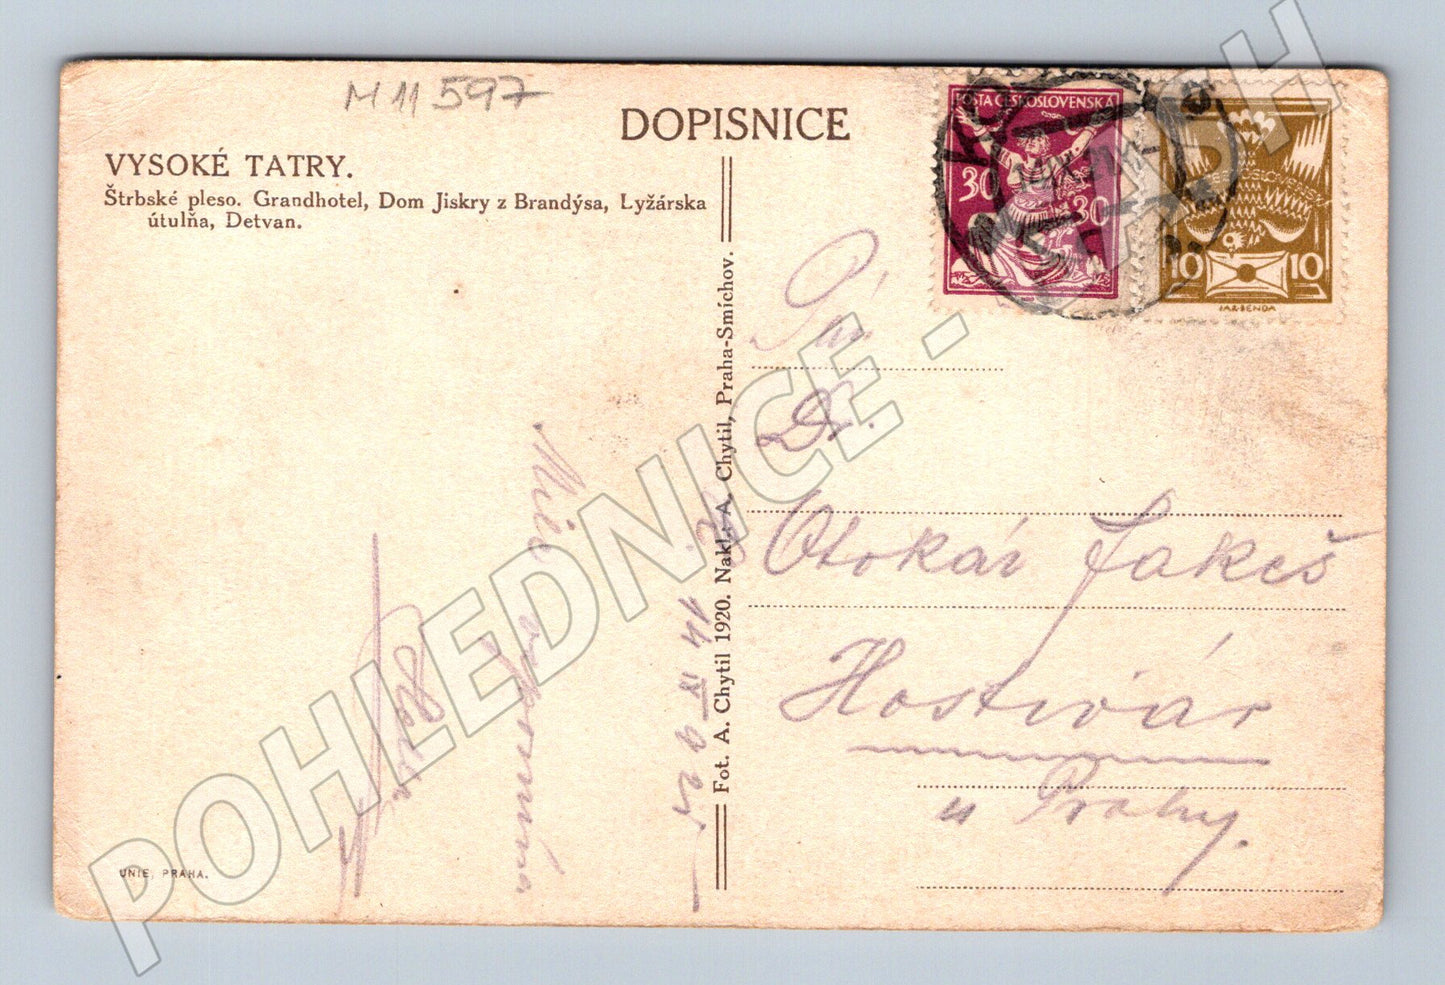 M 11 597
DOPISNICE
VYSOKÉ TATRY.
Štrbské pleso. Grandhotel, Dom Jiskry z Brandýsa, Lyžárska
útulňa, Detvan.
POŠTA ČESKOSLOVENSKÁ
30 30
10 10
JAR. BENDA
Dr.
Otokár Jakeš
Hostivář
u Prahy.
14 IX 925
vzpomíná
Fot. A. Chytil 1920. Nakl. A. Chytil, Praha-Smíchov.
UNIE, PRAHA.
POHLEDNICE -